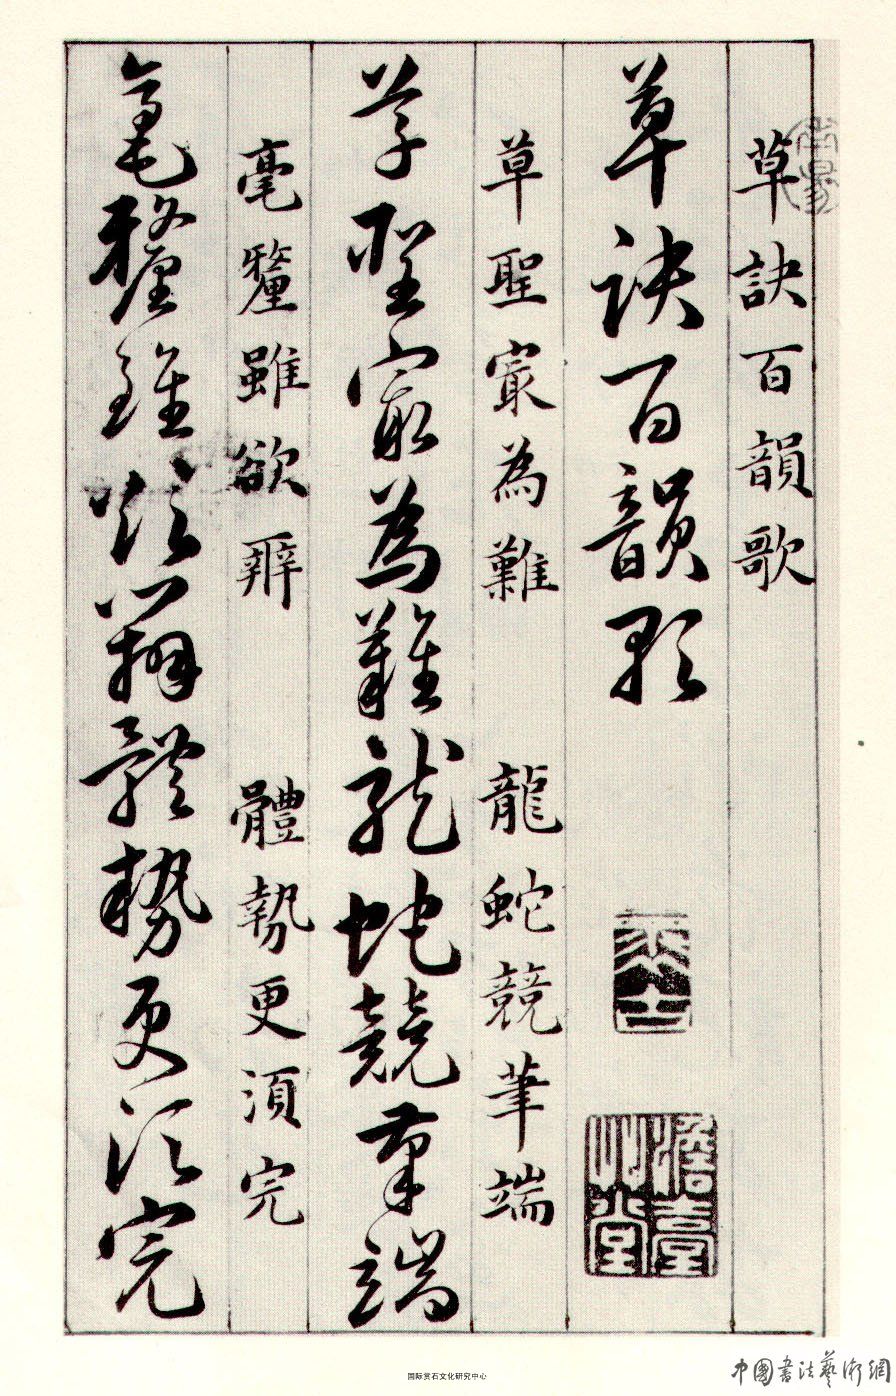 草訣百韻歌
草訣百韻歌
草聖㝡為難 龍蛇競筆端
草聖㝡為難龍蛇競筆端
毫釐雖欲辨 體勢更須完
毫釐雖欲辨體勢更須完
国际赏石文化研究中心
中國書法藝術網